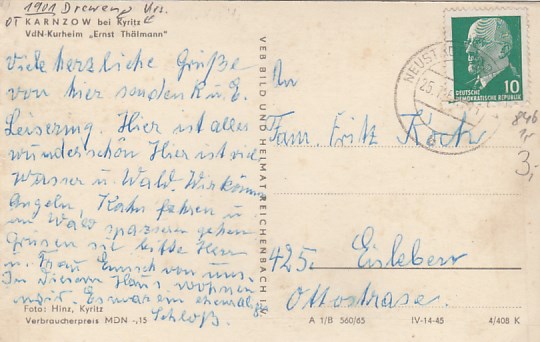 1901 Drewen Krs.
OT KARNZOW bei Kyritz
VdN-Kurheim „Ernst Thälmann"
Viele herzliche Grüße
von hier senden K. u. E.
Leisering. Hier ist alles
wunderschön Hier ist viel
Wasser u. Wald. Wir können
Angeln, Kahn fahren u
im Wald spazieren gehen
Grüsen sie bitte Herrn
u. Frau Emisch von uns.
In diesem Haus wohnen
wir. Es war ein ehemaliges
Schloß.
Foto: Hinz, Kyritz
Verbraucherpreis MDN -,15
VEB BILD UND HEIMAT REICHENBACH I. V.
NEUST
25.
DEUTSCHE
DEMOKRATISCHE REPUBLIK
10
An
Fam. Fritz Koch
425. Eisleben
Ottostrase.
3,-
A 1/B 560/65 IV-14-45 4/408 K